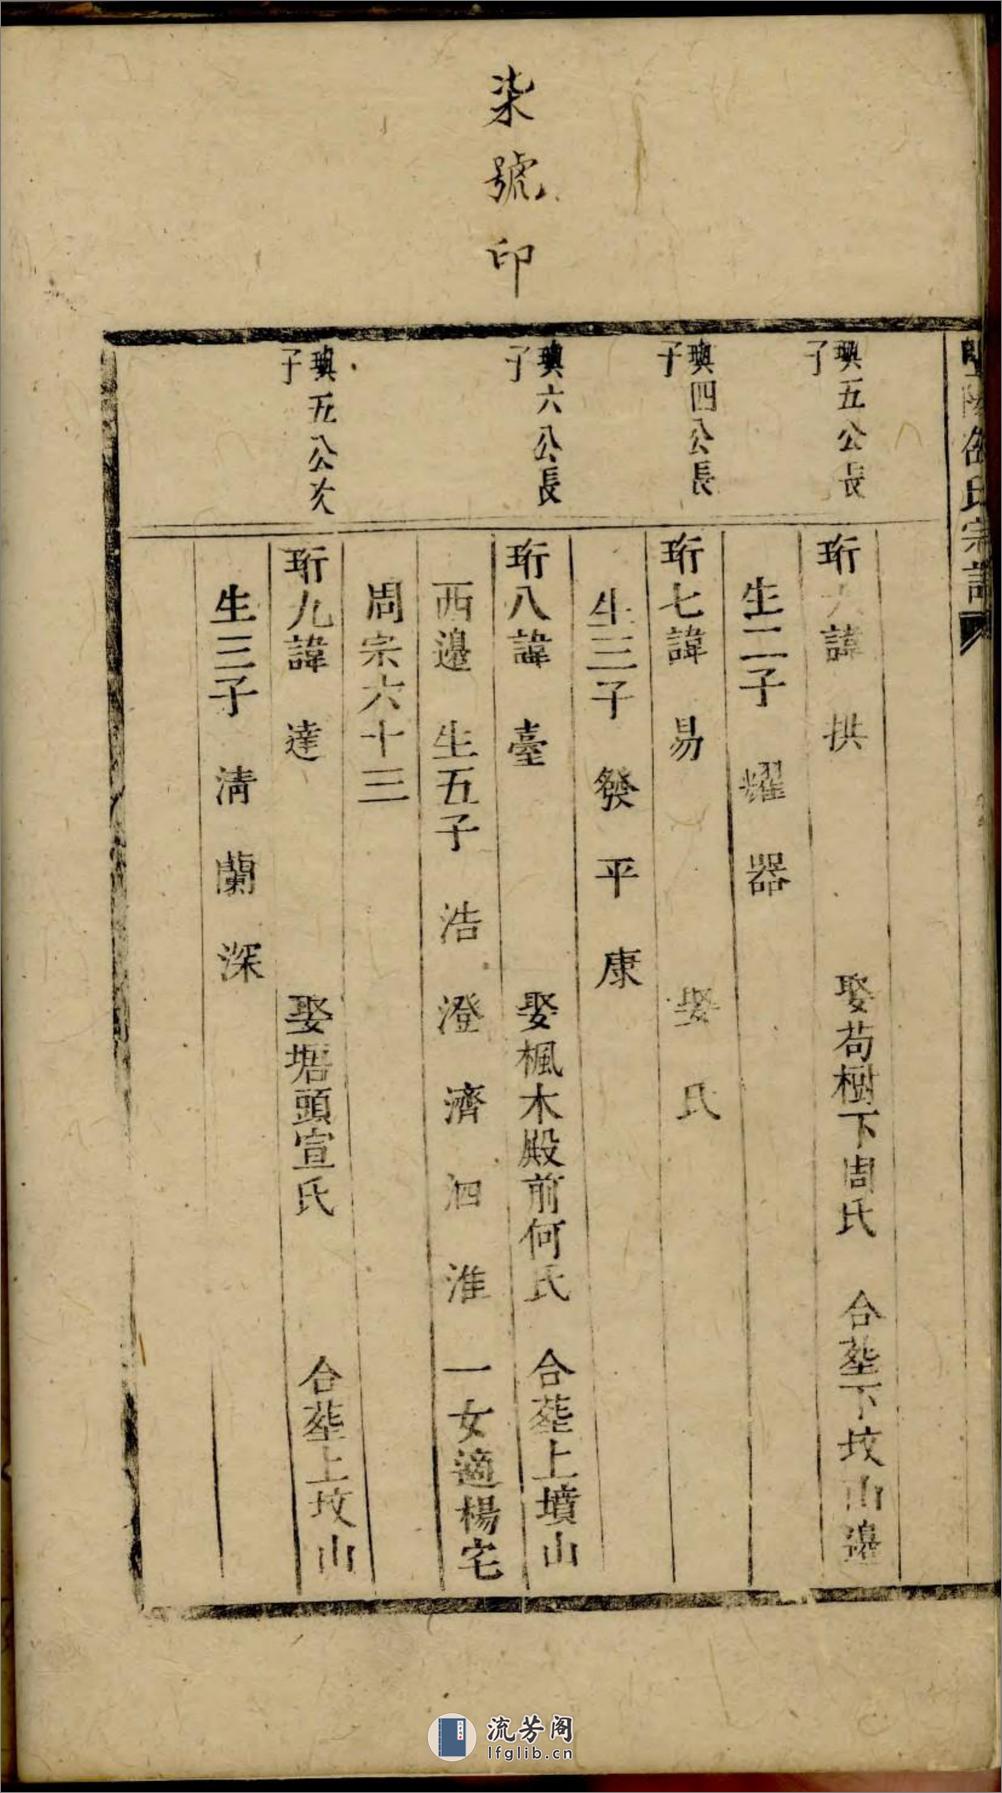 柒號印
氏宗譜
璵五公長子
珩 諱 拱 娶苟樹下周氏 合塟下坟山邉
生二子 耀 器
璵四公長子
珩七諱 易 娶 氏
生三子 發 平 康
璵六公長子
珩八諱 臺 娶楓木殿前何氏 合塟上墳山
西邉 生五子 浩 澄 濟 泗 淮 一女適楊宅
周宗六十三
璵五公次子
珩九諱 達 娶塘頭宣氏 合塟上坟山
生三子 清 蘭 深
流芳阁
lfglib.cn